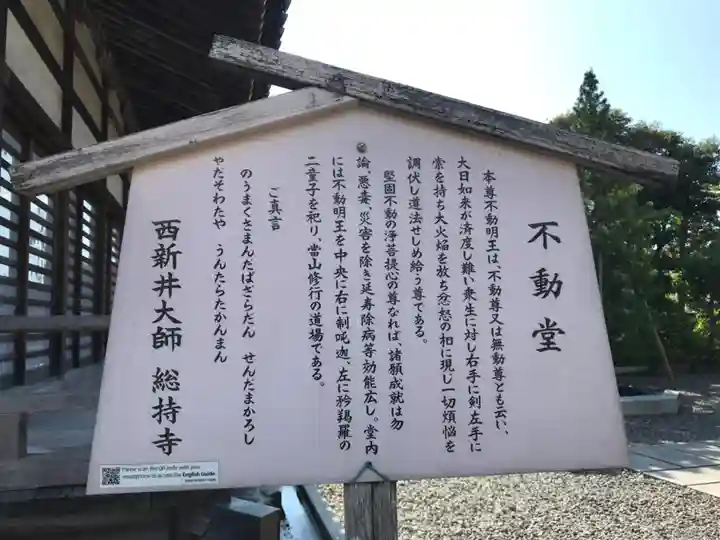 不動堂
本尊不動明王は、不動尊又は無動尊とも云い、
大日如来が済度し難い衆生に対し右手に剣左手に
索を持ち大火焔を放ち忿怒の相に現じ一切煩悩を
調伏し道法せしめ給う尊である。
堅固不動の浄菩提心の尊なれば、諸願成就は勿
論、悪毒、災害を除き延寿除病等効能広し。堂内
には不動明王を中央に右に制吒迦、左に矜羯羅の
二童子を祀り、當山修行の道場である。
ご真言
のうまくさまんたばざらたん せんだまかろし
やだそわたや うんたらたかんまん
西新井大師 総持寺
Please scan the QR code with your
smartphone to access the English Guide